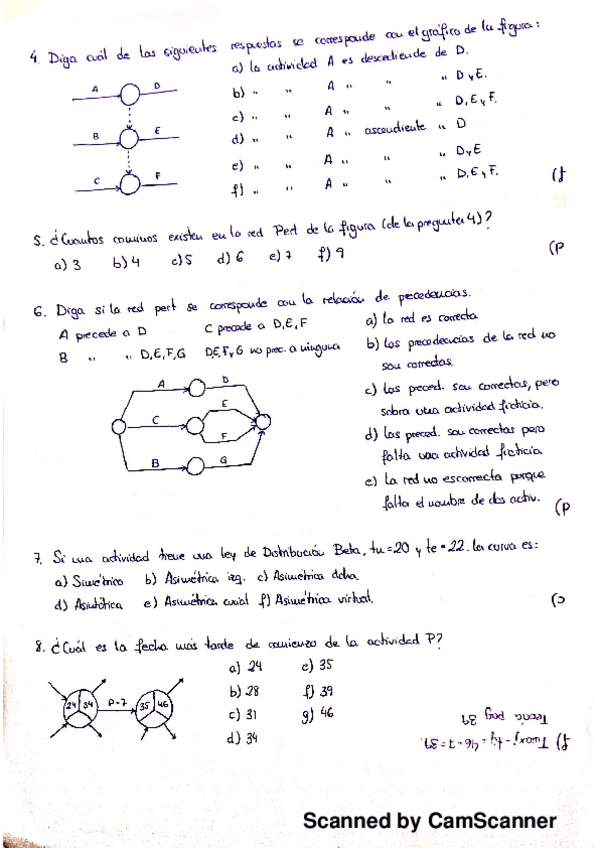 4. Diga cuál de las siguientes respuestas se corresponde con el gráfico de la figura:
a) la actividad A es descendiente de D.
b) " " A " " " D y E.
c) " " A " " " D, E y F.
d) " " A " ascendiente " D
e) " " A " " " D y E
f) " " A " " " D, E y F.
A D
B E
C F
(f
5. ¿Cuantos caminos existen en la red Pert de la figura (de la pregunta 4)?
a) 3 b) 4 c) 5 d) 6 e) 7 f) 9
(p
6. Diga si la red pert se corresponde con la relación de precedencias.
A precede a D C precede a D, E, F
B " " D, E, F, G D, E, F y G no prec. a ninguna
a) la red es correcta
b) las precedencias de la red no
son correctas.
c) las preced. son correctas, pero
sobra una actividad ficticia.
d) las preced. son correctas pero
falta una actividad ficticia
e) La red no es correcta porque
falta el nombre de dos activ.
A D
C E
F
B G
(p
7. Si una actividad tiene una ley de Distribución Beta, tu=20 y te=22. la curva es:
a) Simétrico b) Asimétrica izq. c) Asimétrica dcha.
d) Asintótica e) Asimétrica axial f) Asimétrica virtual.
(c
8. ¿Cuál es la fecha más tarde de comienzo de la actividad P?
a) 24 e) 35
b) 28 f) 39
c) 31 g) 46
d) 34
24 34 P-7 35 46
f) Tmaxj - tij = 46 - 7 = 39.
Teoría pag 39
Scanned by CamScanner